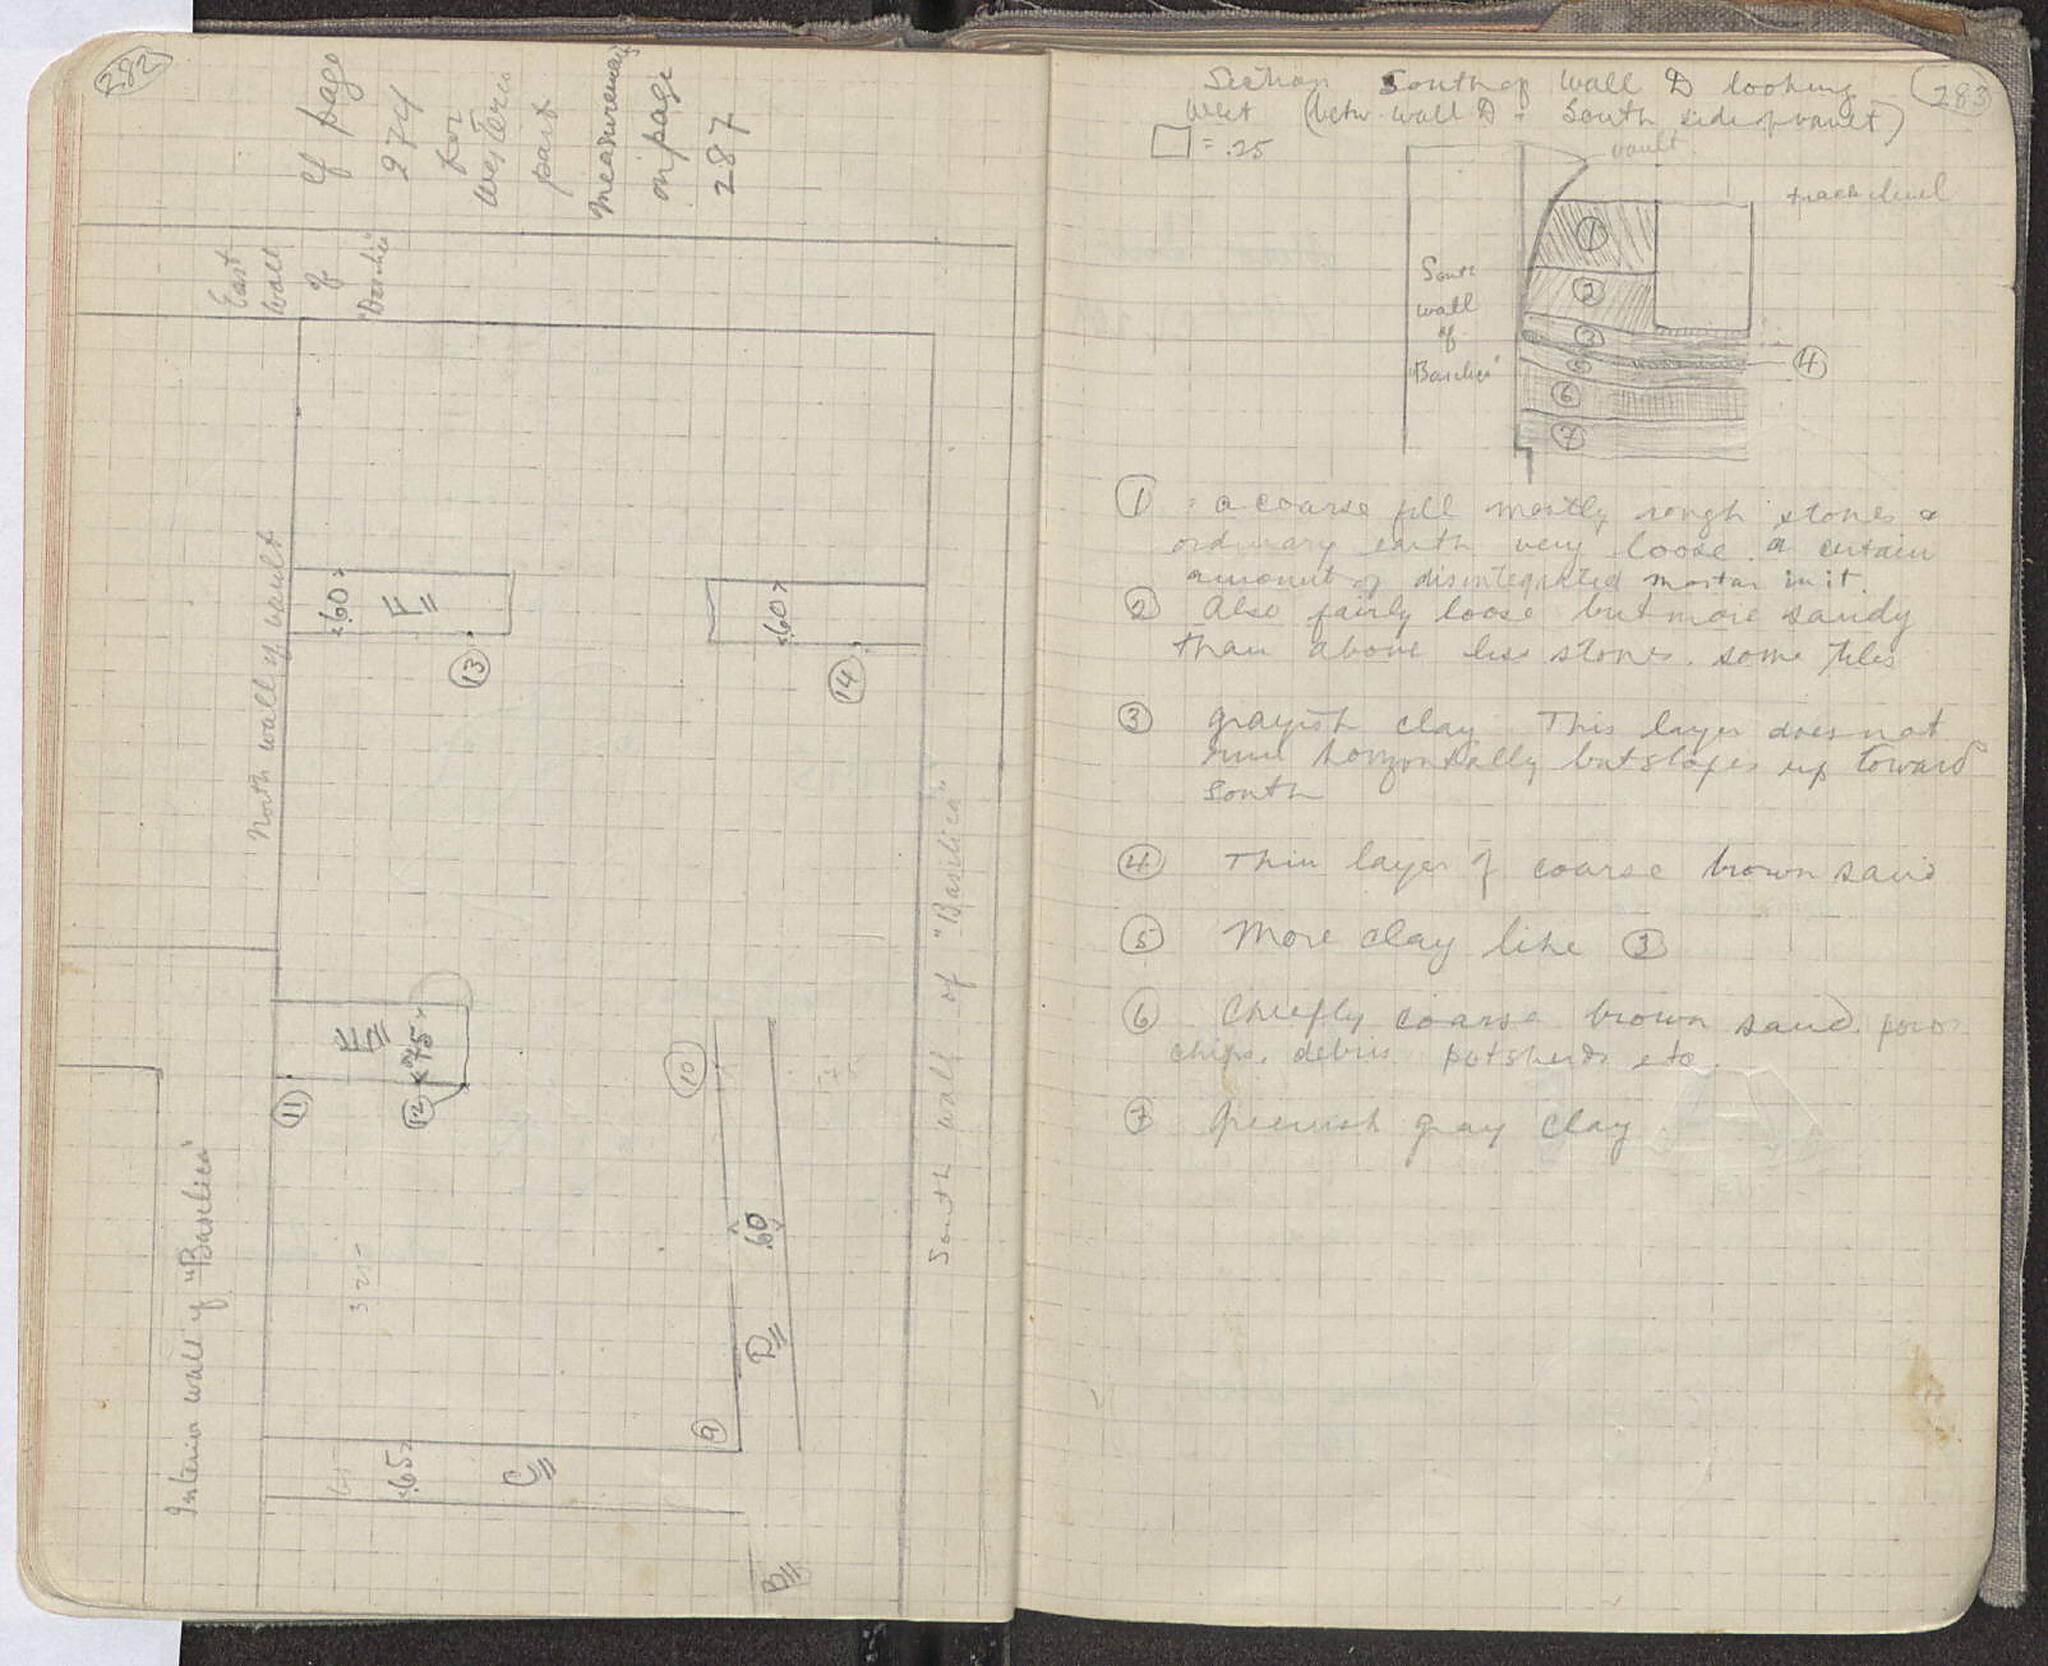 282
cf page
274
for
western
part
measurements
on page
287
East
Wall
of
"Basilica"
North wall of vault
.60
F
13
.60
14
E
.75
11
12
10
Interior wall of "Basilica"
325
.60
D
9
.65
C
B
South wall of "Basilica"
283
Section South of Wall D looking
West (betw. wall D + South side of vault)
= .25
vault
track level
South
wall
of
"Basilica"
1
2
3
4
5
6
7
1 : a coarse fill mostly rough stones &
ordinary earth very loose. a certain
amount of disintegrated mortar in it.
2 Also fairly loose but more sandy
than above less stones. some tiles
3 grayish clay This layer does not
run horizontally but slopes up toward
South
4 Thin layer of coarse brown sand
5 More clay like 3
6 Chiefly coarse brown sand. poros
chips, debris potsherds etc.
7 Greenish gray clay